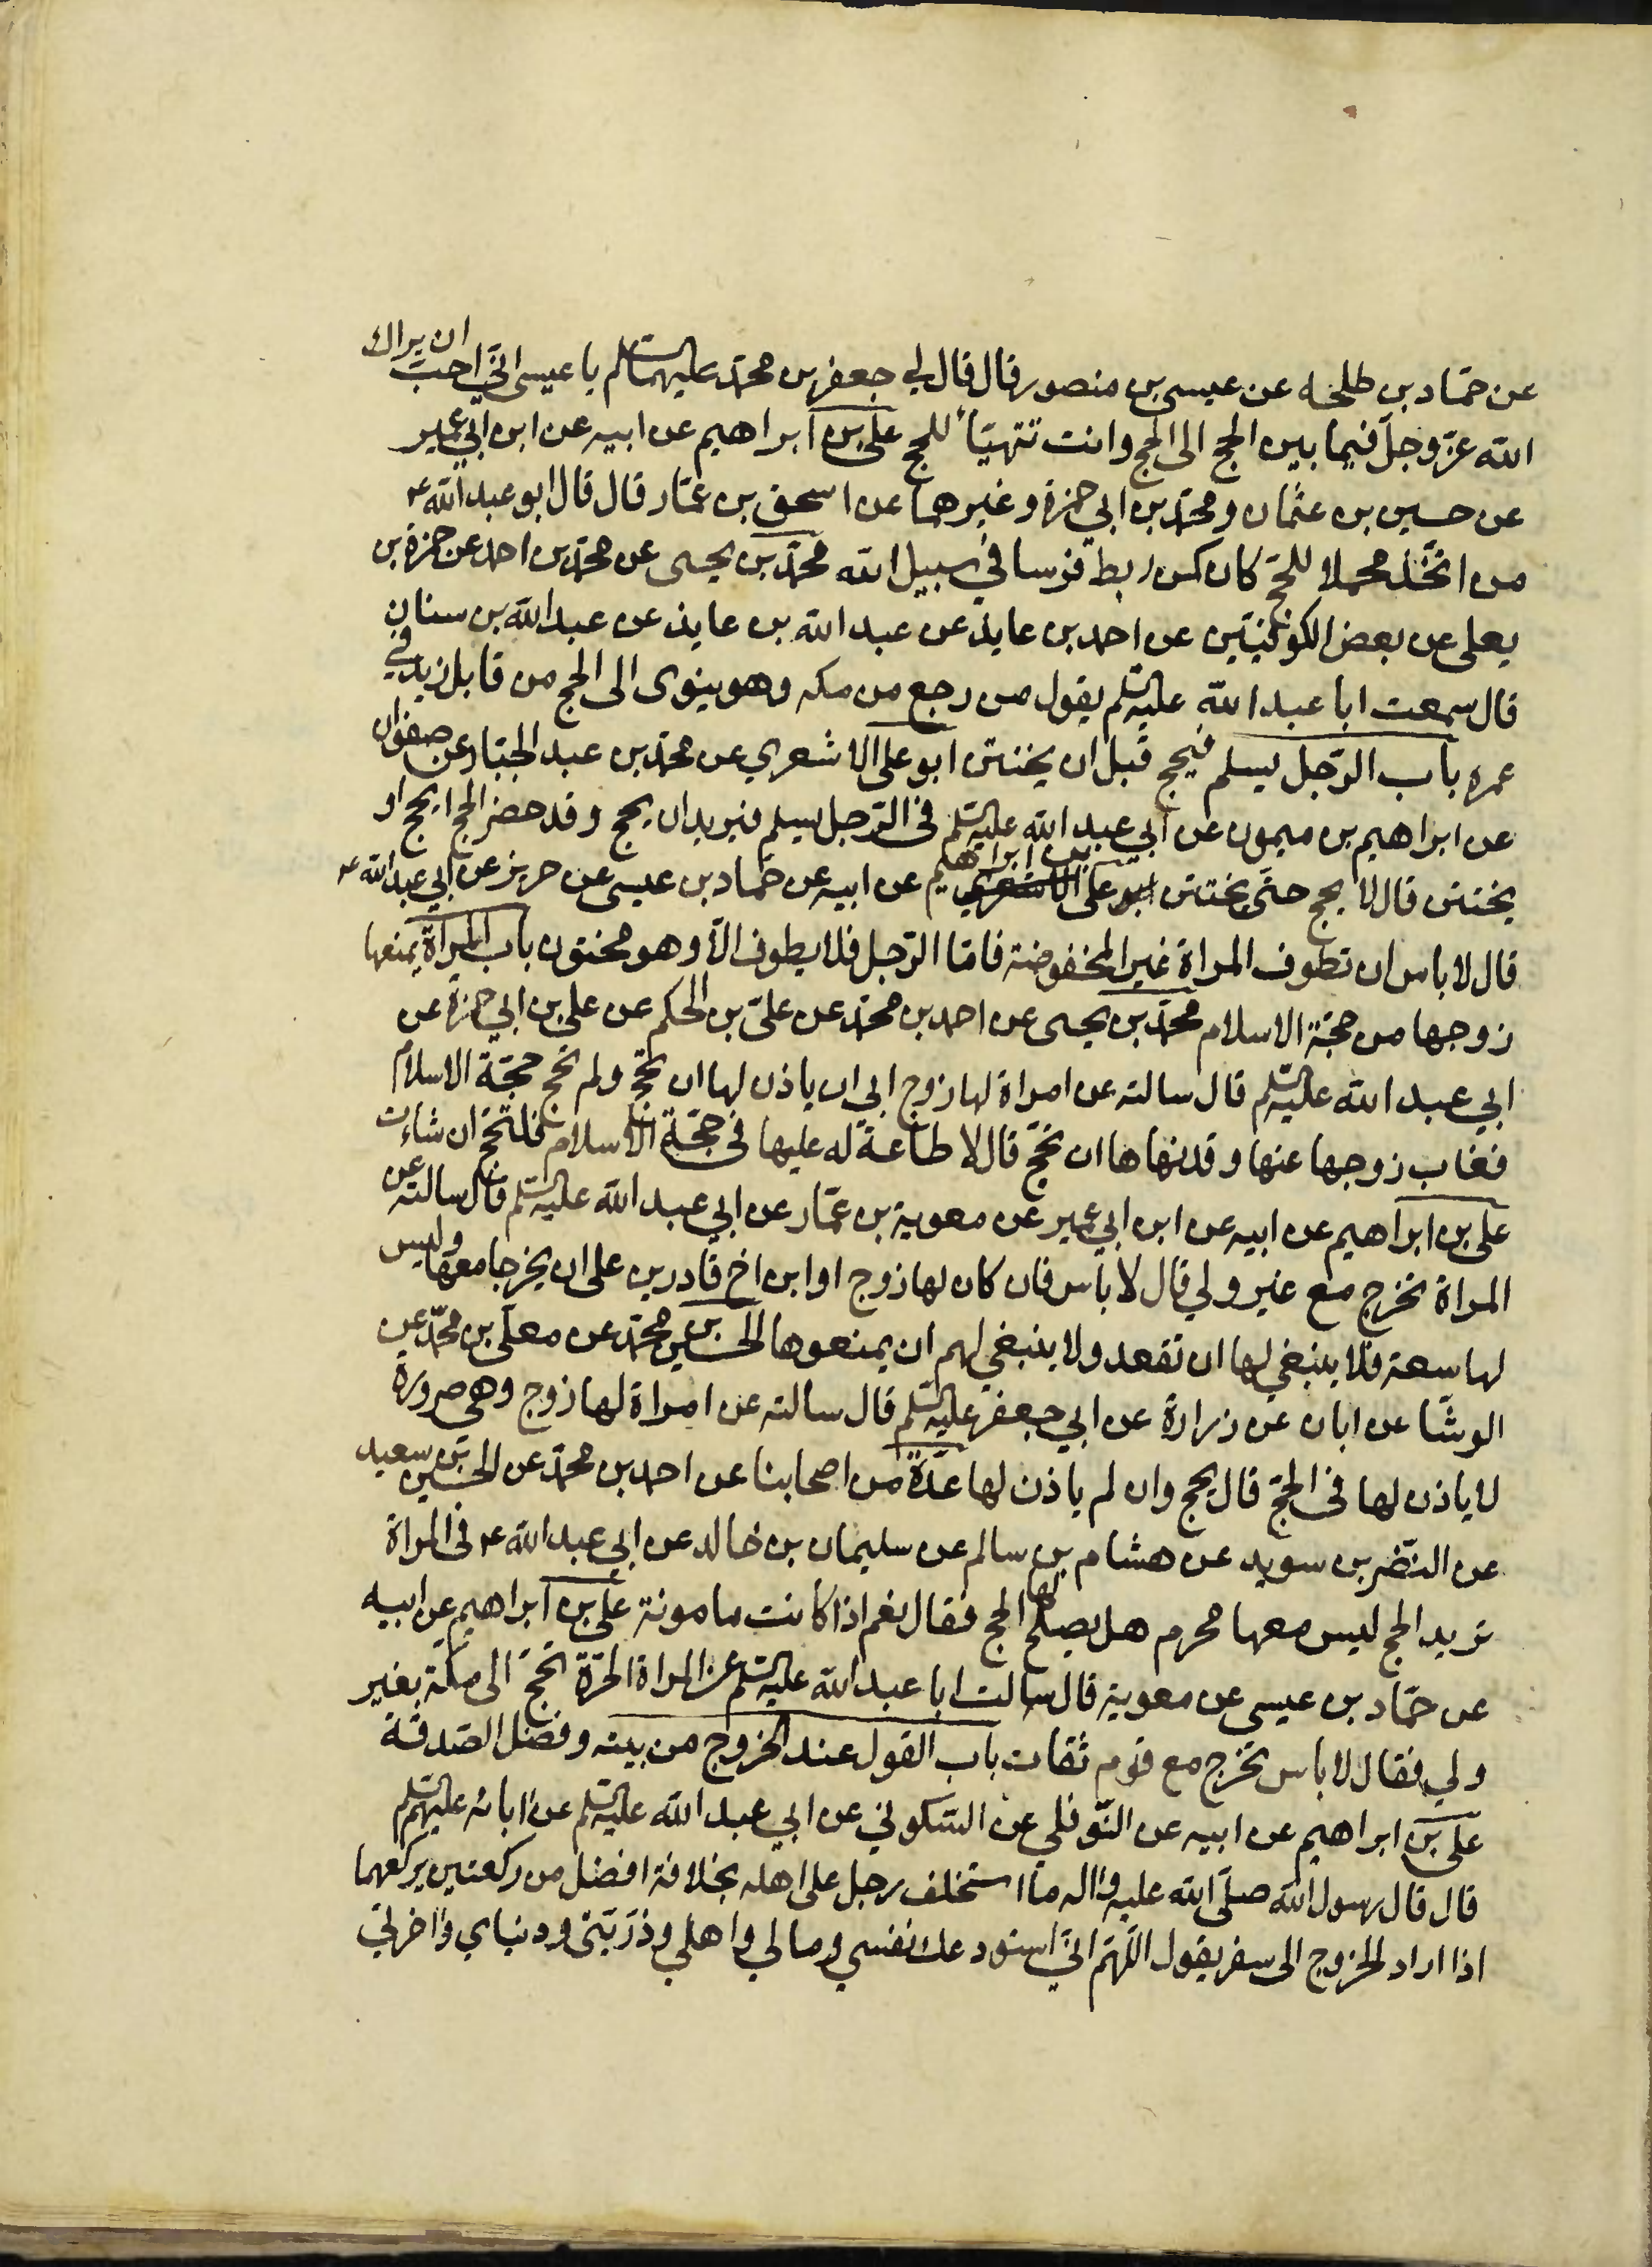 عن حمّاد بن طلحه عن عيسى بن منصور قال قال لي جعفر بن محمّد عليهما السلام يا عيسى انّي احبّ ان يراك
الله عزّ وجلّ فيما بين الحج الى الحج وانت تتهيّأ للحج علي بن ابراهيم عن ابيه عن ابن ابي عمير
عن حسين بن عثمان ومحمّد بن ابي حمزة وغيرهما عن اسحق بن عمّار قال قال ابو عبد الله ع
من اتّخذ محملا للحجّ كان كمن ربط فرسا في سبيل الله محمّد بن يحيى عن محمّد بن احمد عن حمزة بن
يعلى عن بعض الكوفيّين عن احمد بن عايذ عن عبد الله بن عايذ عن عبد الله بن سنان
قال سمعت ابا عبد الله عليه السلم يقول من رجع من مكه وهو ينوى الى الحج من قابل زيد في
عمره باب الرّجل يسلم فيحج قبل ان يختتن ابو على الاشعري عن محمّد بن عبد الجبّار عن صفوان
عن ابراهيم بن ميمون عن ابي عبد الله عليه السلم فى الرّجل يسلم فيريد ان يحج وقد حضر الحج ايحج او
يختتن قال لا يحج حتّى يختتن علي بن ابراهيم عن ابيه عن حمّاد بن عيسى عن حريز عن ابي عبد الله ع
قال لا باس ان تطوف المراة غير المخفوضة فامّا الرّجل فلا يطوف الّا وهو مختون باب المراة يمنعها
زوجها من حجّة الاسلام محمّد بن يحيى عن احمد بن محمّد عن عليّ بن الحكم عن علي بن ابي حمزة عن
ابي عبد الله عليه السلم قال سالته عن امراة لها زوج ابي ان ياذن لها ان تحجّ ولم تحج حجّة الاسلام
فغاب زوجها عنها وقد نهاها ان تحجّ قال لا طاعة له عليها فى حجّة الاسلام فلتحجّ ان شاءت
علي بن ابراهيم عن ابيه عن ابن ابي عمير عن معوية بن عمّار عن ابي عبد الله عليه السلم قال سالته عن
المراة تخرج مع غير ولي قال لا باس فان كان لها زوج او ابن اخ قادرين على ان يخرجا معها وليس
لها سعة فلا ينبغي لها ان تقعد ولا ينبغي لهم ان يمنعوها الحسين بن محمّد عن معلّى بن محمّد عن
الوشّا عن ابان عن زرارة عن ابي جعفر عليه السلم قال سالته عن امراة لها زوج وهى صرورة
لا ياذن لها فى الحجّ قال يحج وان لم ياذن لها عدّة من اصحابنا عن احمد بن محمّد عن الحسين بن سعيد
عن النّضر بن سويد عن هشام بن سالم عن سليمان بن خالد عن ابي عبد الله ع فى المراة
تريد الحج ليس معها محرم هل يصلح لها الحج فقال نعم اذا كانت مامونة علي بن ابراهيم عن ابيه
عن حمّاد بن عيسى عن معوية قال سالت ابا عبد الله عليه السلم عن المراة الحرّة تحجّ الى مكّة بغير
ولي فقال لا باس تخرج مع قوم ثقات باب القول عند الخروج من بيته وفضل الصّدقة
علي بن ابراهيم عن ابيه عن النّوفلي عن السّكوني عن ابي عبد الله عليه السلم عن ابائه عليهم السلم
قال قال رسول الله صلّى الله عليه واله ما استخلف رجل على اهله بخلافة افضل من ركعتين يركعهما
اذا اراد الخروج الى سفر يقول اللّهمّ انّي استودعك نفسي ومالي واهلي وذرّيّتي ودنياي واخرتي